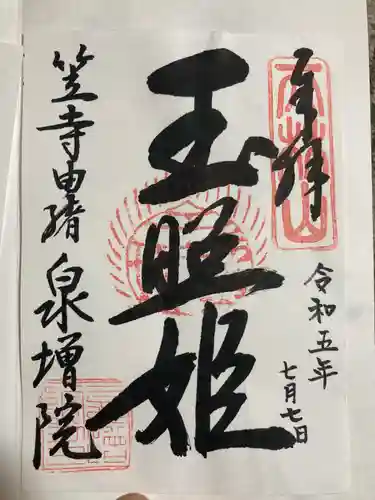 奉拝
令和五年
七月七日
玉照姫
笠寺由緒 泉増院